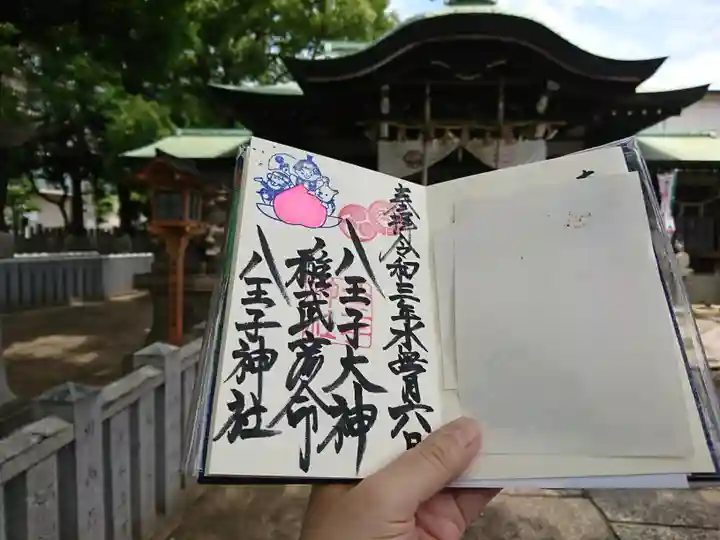 奉拝 令和三年水無月六日
八王子大神
稚武彦命
八王子神社